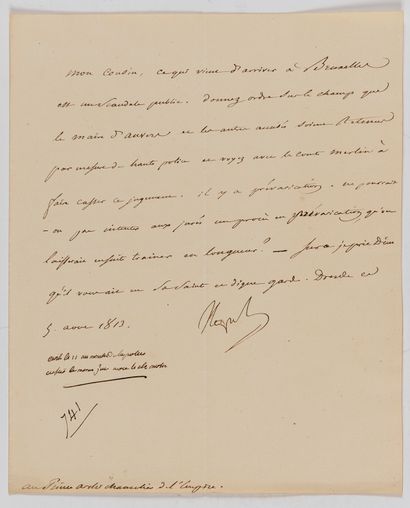 Mon Cousin, ce qui vient d'arriver à Bruxelles
est un scandale public. donnez ordre sur le champ que
le maire d'anvers et les autres accusés soient retenus
par mesure de haute police et voyez avec le comte merlin à
faire casser ce jugement. il y a prévarication. ne pourrait
-on pas intenter aux jurés un procès en prévarication qu'on
laisserait ensuite trainer en longueur? — Sur ce je prie Dieu
qu'il vous ait en Sa Sainte et digne garde. Dresde ce
5. aout 1813.
écrit le 11 au ministre de la police
741
au Prince archichancelier de l'Empire.